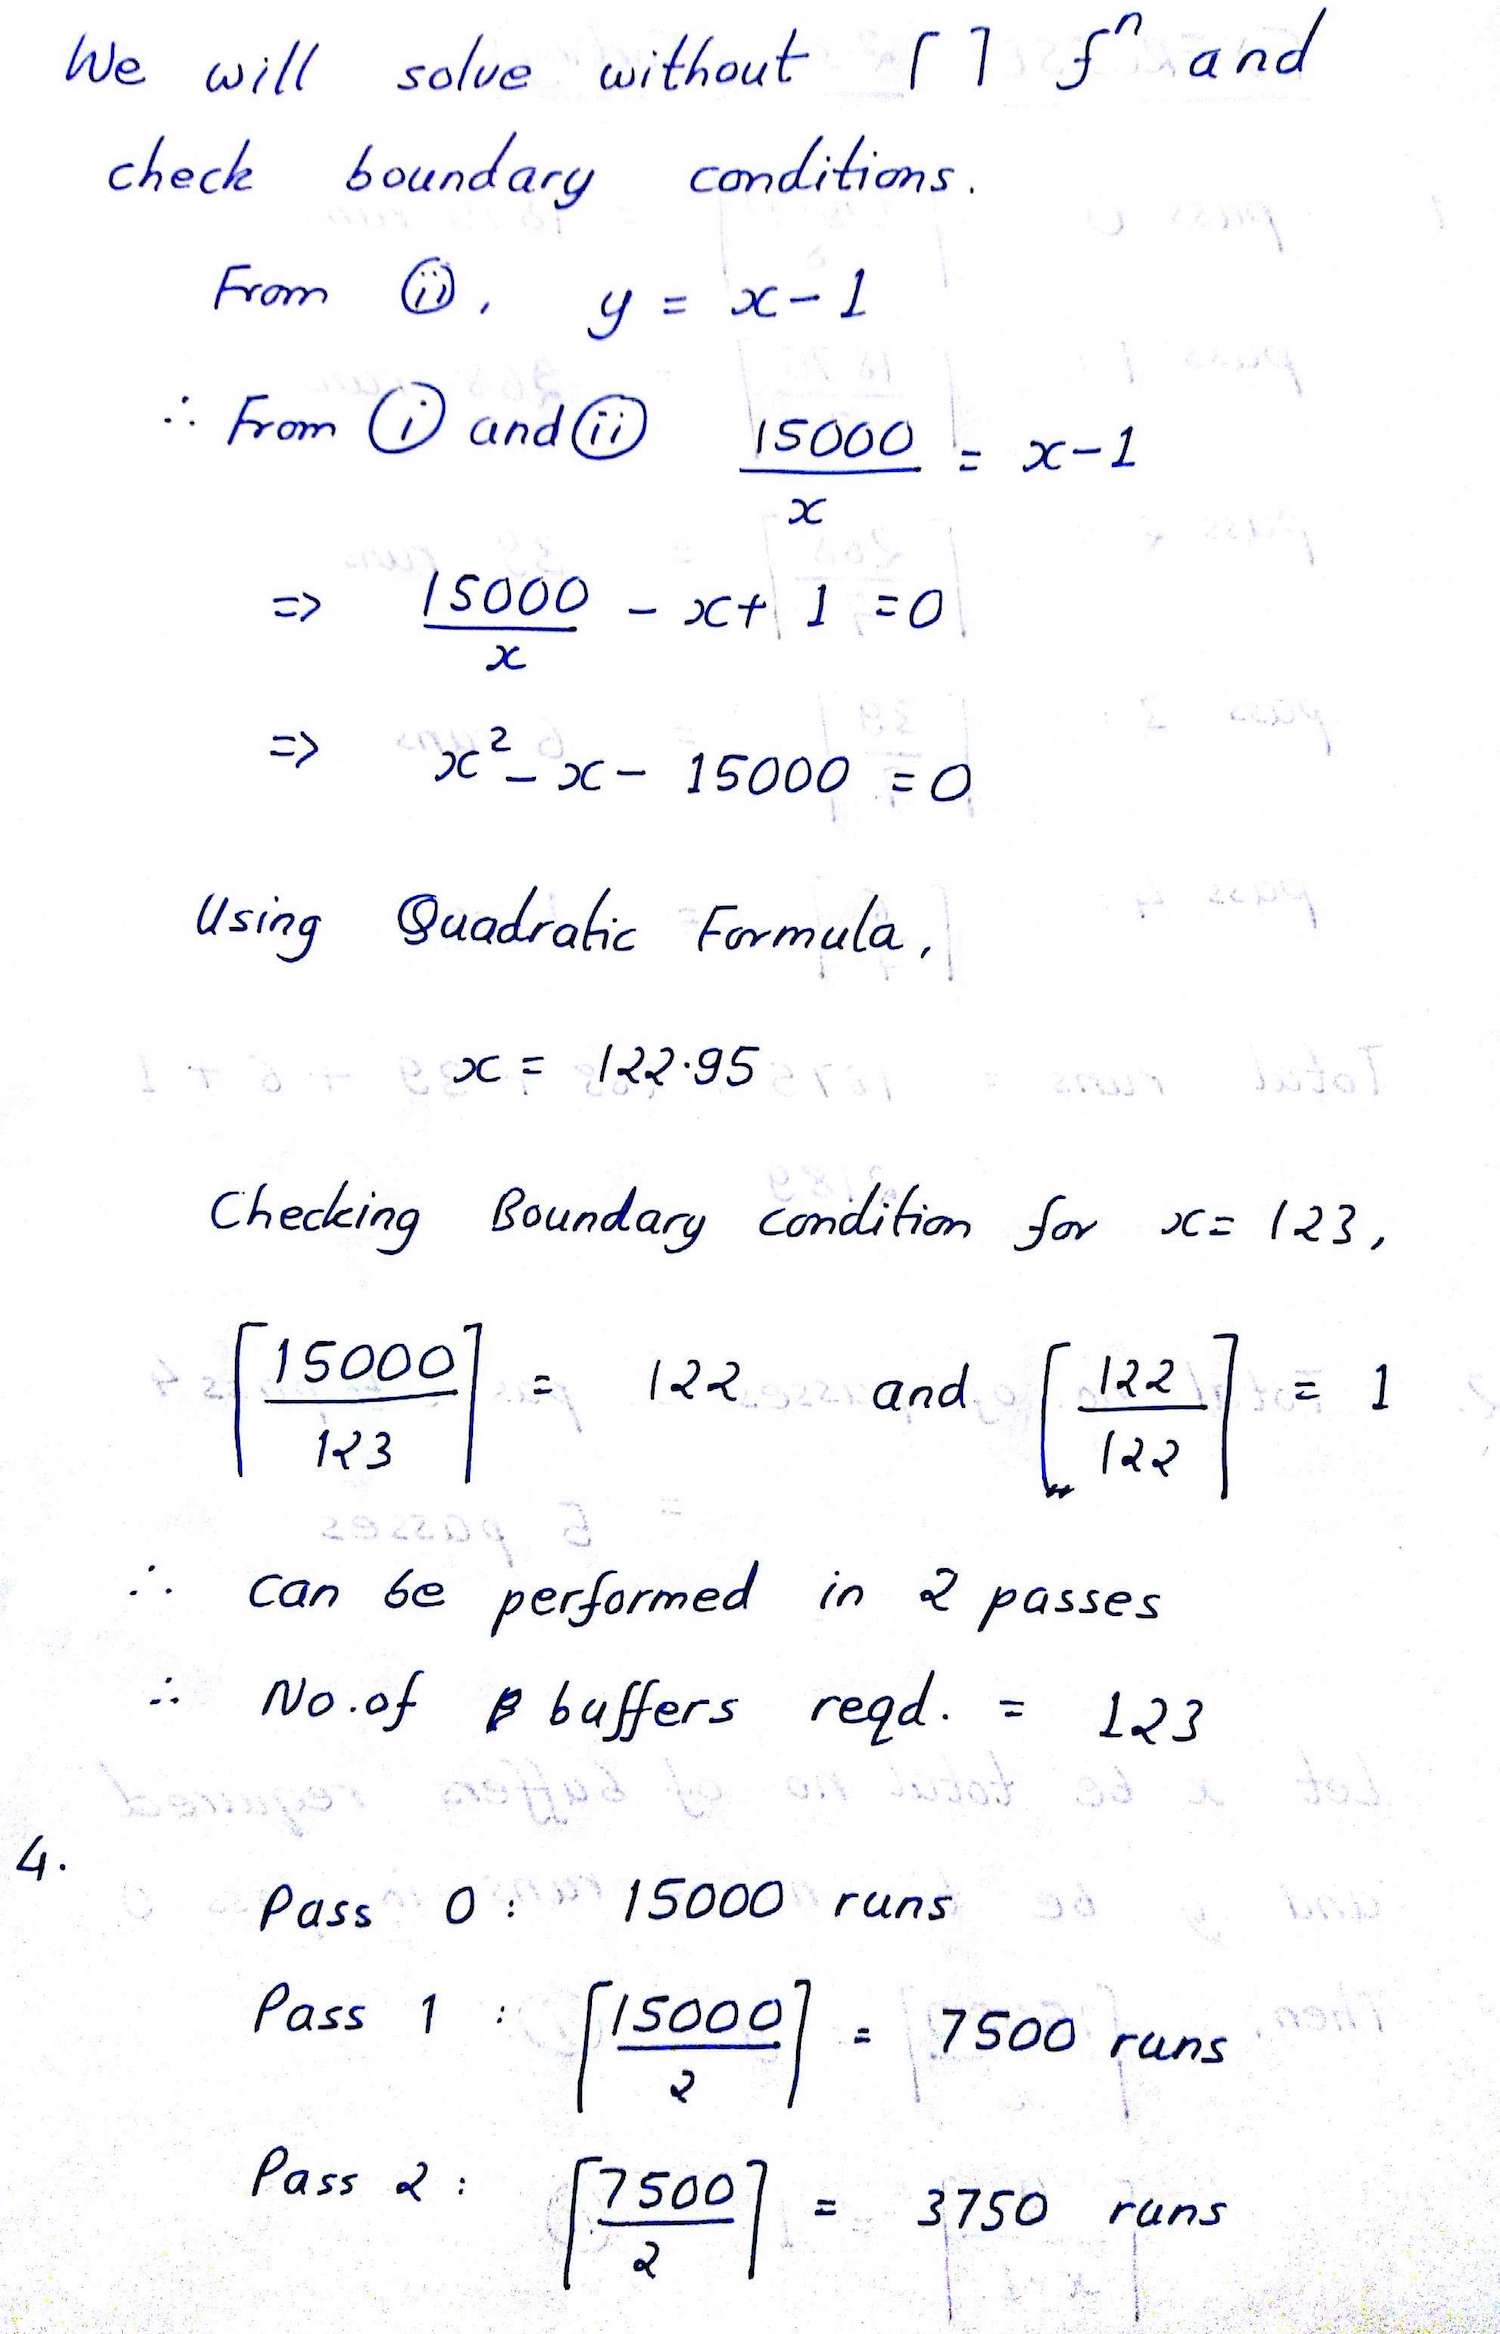 We will solve without ⌈ ⌉ fⁿ and
check boundary conditions.
From ⓘⓘ, y = x - 1
∴ From ⓘ and ⓘⓘ 15000/x = x - 1
=> 15000/x - x + 1 = 0
=> x² - x - 15000 = 0
Using Quadratic Formula,
x = 122.95
Checking Boundary condition for x = 123,
⌈15000/123⌉ = 122 and ⌈122/122⌉ = 1
∴ can be performed in 2 passes
∴ No. of buffers reqd. = 123
4.
Pass 0 : 15000 runs
Pass 1 : ⌈15000/2⌉ = 7500 runs
Pass 2 : ⌈7500/2⌉ = 3750 runs